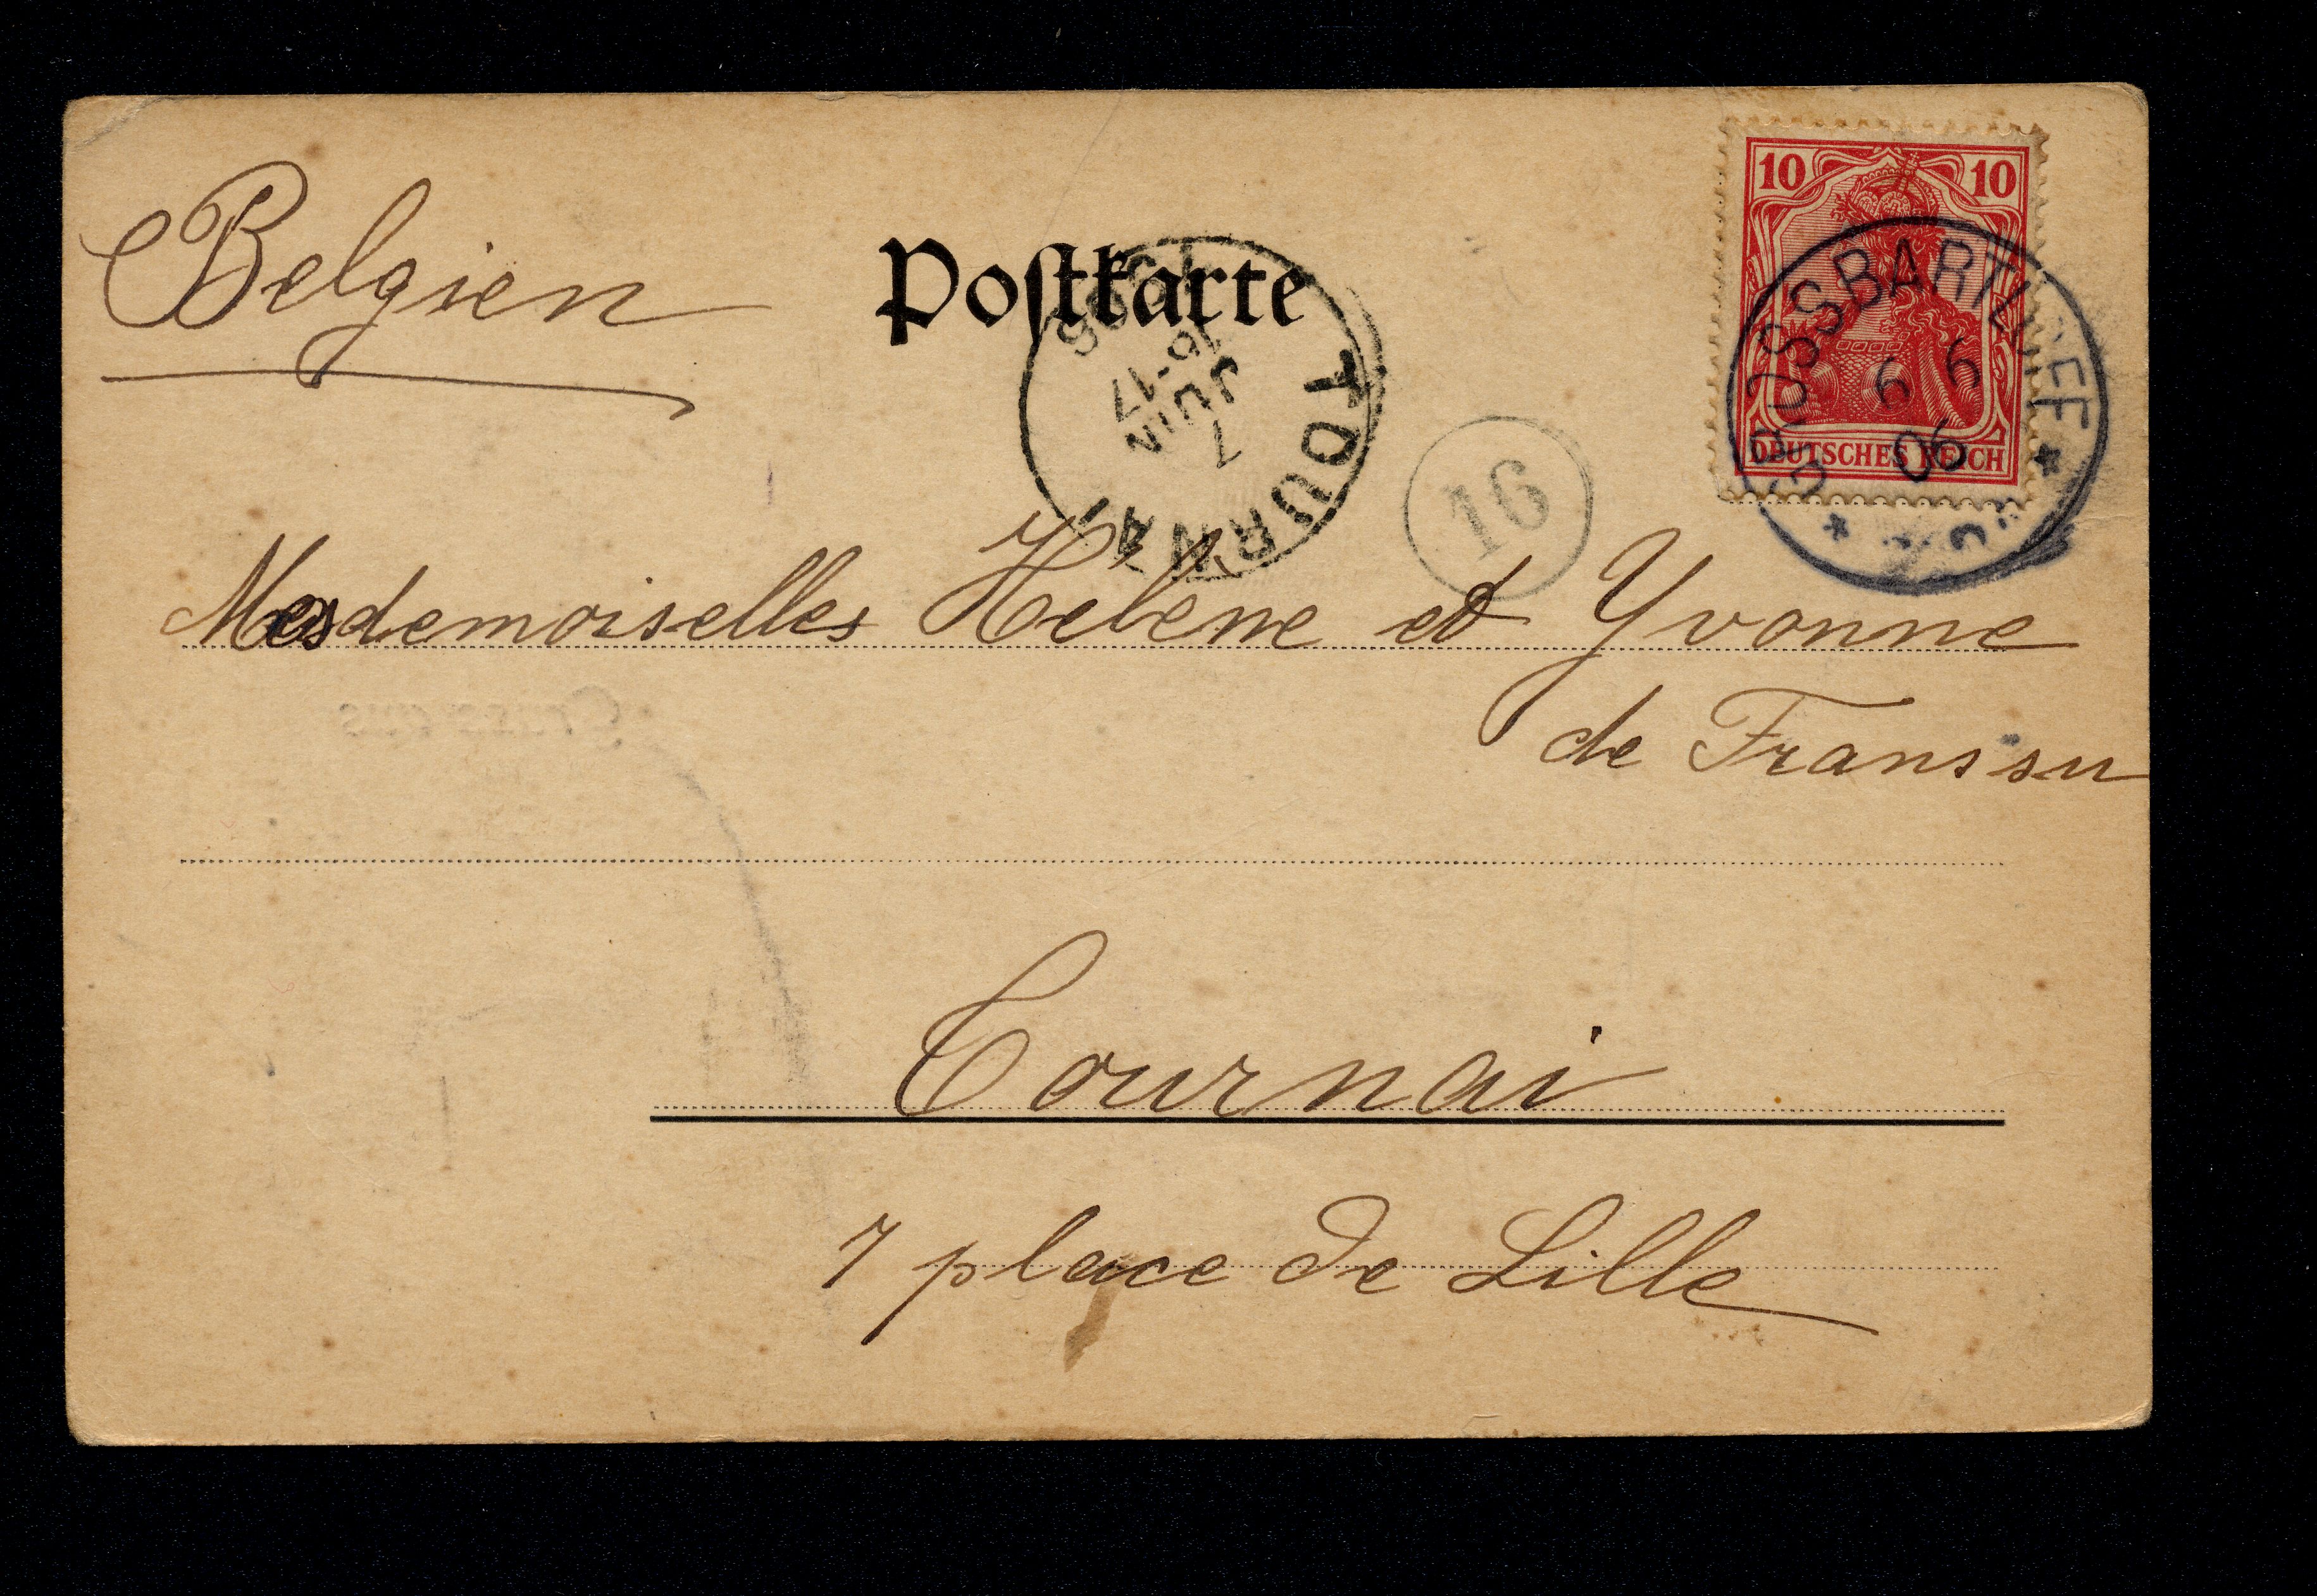 Belgien
Postkarte
10 10
DEUTSCHES REICH
GROSSBARTLOFF
6 6
06
TOURNAI
7
JUIN
16-17
1906
16
Mesdemoiselles Hélène et Yvonne
de Franssu
Tournai
7 place de Lille